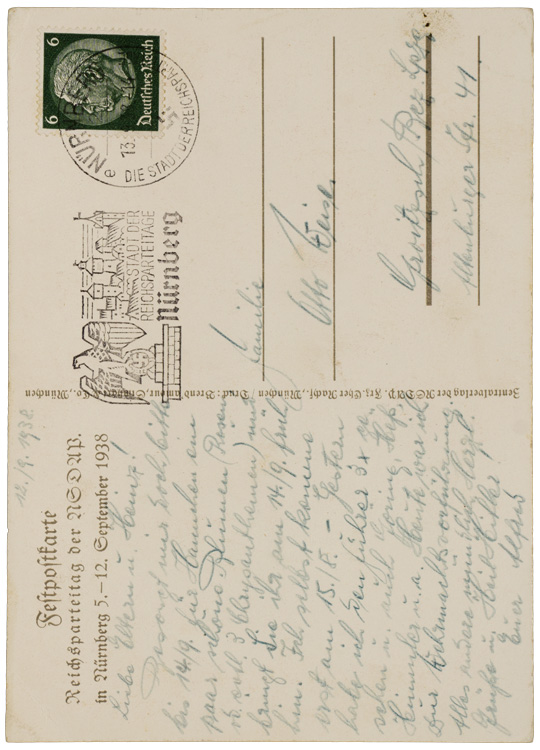 12./9. 1938.
Festpostkarte
Reichsparteitag der NSDAP.
in Nürnberg 5.–12. September 1938
Liebe Eltern u. Heinz!
Besorgt mir doch bitte
bis 14./9. für Hannchen ein
paar schöne Blumen (Rosen
od. evtl. 3 Chrysanthemen) und
bringt Sie ihr am 14./9. früh
hin. Ich selbst komme
erst am 15./9. – Gestern
habe ich den Führer 3x ge-
sehen u. auch Göring, Heß,
Himmler u. a. Heute war ich
zur Wehrmachtsvorführung.
Alles andere mündlich. Herzl.
Grüße u. Heil Hitler
Euer
Zentralverlag der NSDAP. Frz. Eher Nachf., München
Druck:
München
Deutsches Reich
6
6
NÜRNBERG
13.
e
DIE STADT DER REICHSPARTEITAGE
STADT DER
REICHSPARTEITAGE
Nürnberg
Familie
Otto Weise
Groitzsch / Bez. Lpzg
Altenburger Str. 41